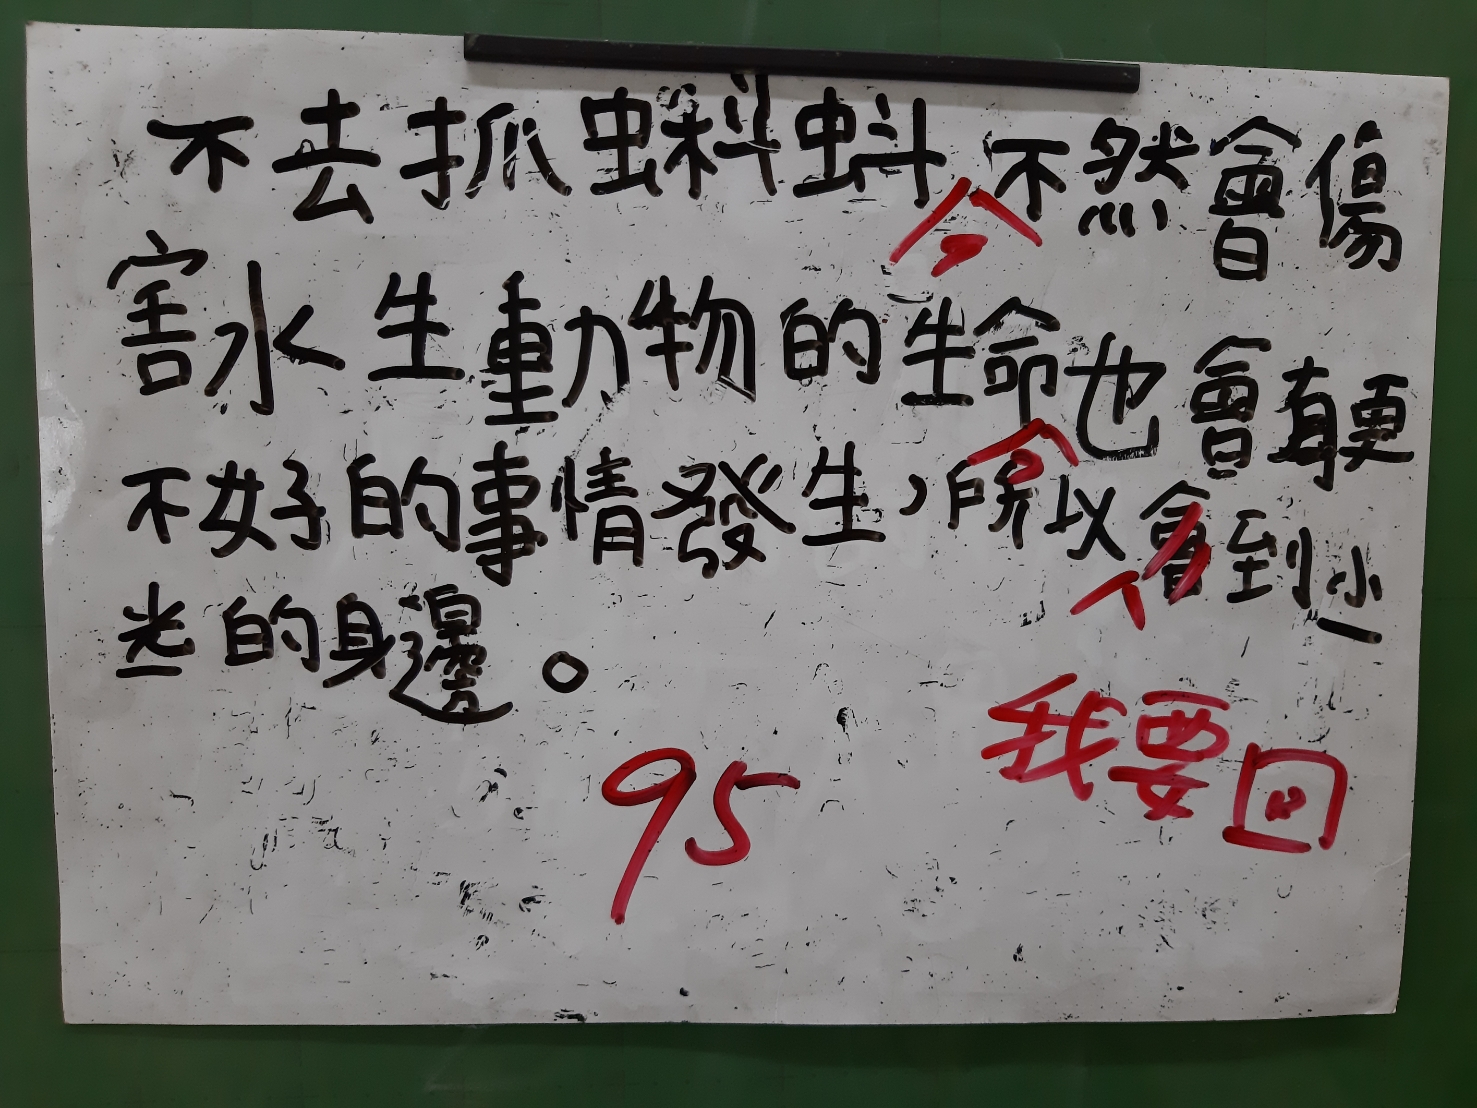 不去抓蝌蚪，不然會傷
害水生動物的生命，也會有更
不好的事情發生，所以會到小
光的身邊。
95
我要回